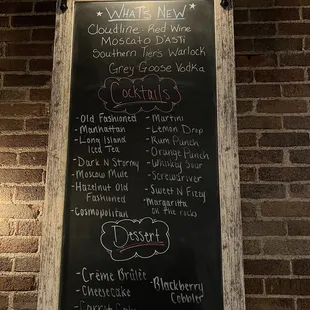 ★ What's New ★
Cloudline - Red Wine
Moscato D'Asti
Southern Tiers Warlock
Grey Goose Vodka
Cocktails
- Old Fashioned
- Manhattan
- Long Island
Iced Tea
- Dark N Stormy
- Moscow Mule
- Hazelnut Old
Fashioned
- Cosmopolitan
- Martini
- Lemon Drop
- Rum Punch
- Orange Punch
- Whiskey Sour
- Screwdriver
- Sweet N Fizzy
- Margarita
on the rocks
Dessert
- Crème Brûlée
- Cheesecake
- Carrot Cake
- Blackberry
Cobbler